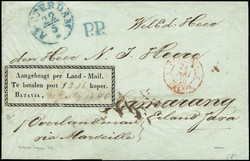 AMSTERDAM
22/5
P.P.
WelEd Heer
den Heer N. J. Heere
Aangebragt per Land-Mail.
Te betalen port koper.
BATAVIA,
Samarang
Eiland Java
p Overland mail
via Marseille